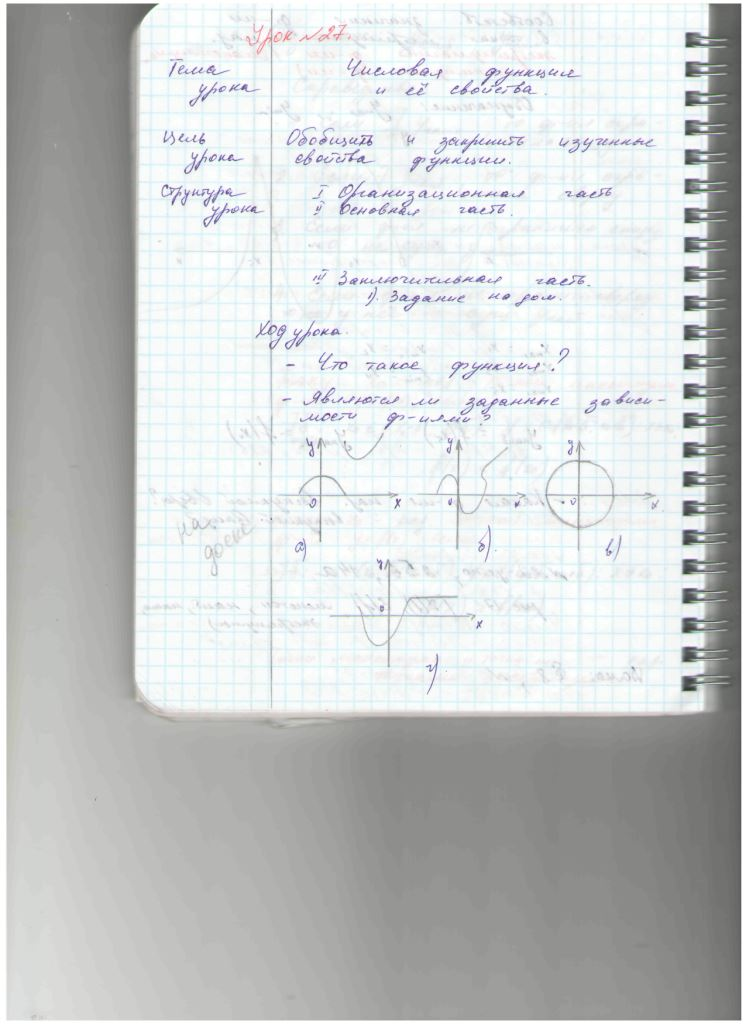 Урок №27.
Тема Числовая функция
урока и её свойства.
Цель Обобщить и закрепить изученные
урока свойства функции.
Структура I Организационная часть
урока II Основная часть.
III Заключительная часть.
1). Задание на дом.
Ход урока.
- Что такое функция?
- Являются ли заданные зависи-
мости ф-иями?
y y y
0 x 0 x 0 x
на доске
а) б). в)
y
0 x
г)